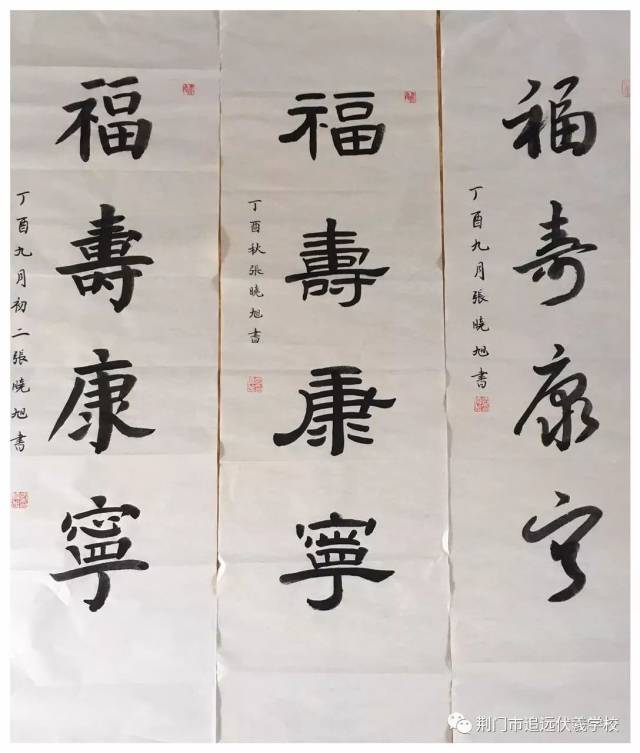 福寿康宁
丁酉九月張晓旭書
福壽康寧
丁酉秋張晓旭書
福壽康寧
丁酉九月初二張晓旭書
荆门市追远伏羲学校